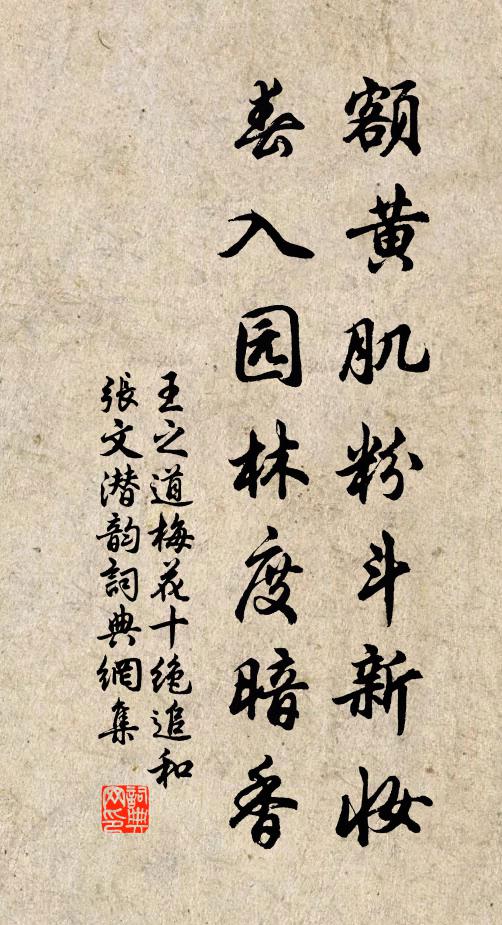 额黄肌粉斗新妆
春入园林度暗香
王之道梅花十绝追和
張文潜韵詞典網集
詞典网印